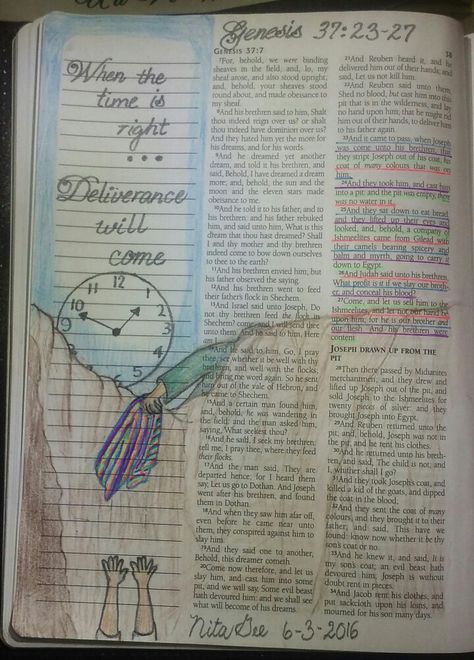 Genesis 37:23-27
GENESIS 37:7
38
When the
time is
right
...
Deliverance
will
come
12
11
1
10
2
9
3
8
4
7For, behold, we were binding
sheaves in the field, and, lo, my
sheaf arose, and also stood upright;
and, behold, your sheaves stood
round about, and made obeisance to
my sheaf.
8And his brethren said to him, Shalt
thou indeed reign over us? or shalt
thou indeed have dominion over us?
And they hated him yet the more for
his dreams, and for his words.
9And he dreamed yet another
dream, and told it his brethren, and
said, Behold, I have dreamed a dream
more; and, behold, the sun and the
moon and the eleven stars made
obeisance to me.
10And he told it to his father, and to
his brethren: and his father rebuked
him, and said unto him, What is this
dream that thou hast dreamed? Shall
I and thy mother and thy brethren
indeed come to bow down ourselves
to thee to the earth?
11And his brethren envied him; but
his father observed the saying.
12And his brethren went to feed
their father's flock in Shechem.
13And Israel said unto Joseph, Do
not thy brethren feed the flock in
Shechem? come, and I will send thee
unto them. And he said to him, Here
am I.
14And he said to him, Go, I pray
thee, see whether it be well with thy
brethren, and well with the flocks;
and bring me word again. So he sent
him out of the vale of Hebron, and
he came to Shechem.
15And a certain man found him,
and, behold, he was wandering in
the field: and the man asked him,
saying, What seekest thou?
16And he said, I seek my brethren:
tell me, I pray thee, where they feed
their flocks.
17And the man said, They are
departed hence; for I heard them
say, Let us go to Dothan. And Joseph
went after his brethren, and found
them in Dothan.
18And when they saw him afar off,
even before he came near unto
them, they conspired against him to
slay him.
19And they said one to another,
Behold, this dreamer cometh.
20Come now therefore, and let us
slay him, and cast him into some
pit, and we will say, Some evil beast
hath devoured him: and we shall see
what will become of his dreams.
21And Reuben heard it, and he
delivered him out of their hands; and
said, Let us not kill him.
22And Reuben said unto them,
Shed no blood, but cast him into this
pit that is in the wilderness, and lay
no hand upon him; that he might rid
him out of their hands, to deliver him
to his father again.
23And it came to pass, when Joseph
was come unto his brethren, that
they stript Joseph out of his coat, his
coat of many colours that was on
him;
24And they took him, and cast him
into a pit: and the pit was empty, there
was no water in it.
25And they sat down to eat bread:
and they lifted up their eyes and
looked, and, behold, a company of
Ishmeelites came from Gilead with
their camels bearing spicery and
balm and myrrh, going to carry it
down to Egypt.
26And Judah said unto his brethren,
What profit is it if we slay our broth-
er, and conceal his blood?
27Come, and let us sell him to the
Ishmeelites, and let not our hand be
upon him; for he is our brother and
our flesh. And his brethren were
content.
JOSEPH DRAWN UP FROM THE
PIT
28Then there passed by Midianites
merchantmen; and they drew and
lifted up Joseph out of the pit, and
sold Joseph to the Ishmeelites for
twenty pieces of silver: and they
brought Joseph into Egypt.
29And Reuben returned unto the
pit; and, behold, Joseph was not in
the pit; and he rent his clothes.
30And he returned unto his breth-
ren, and said, The child is not; and
I, whither shall I go?
31And they took Joseph's coat, and
killed a kid of the goats, and dipped
the coat in the blood;
32And they sent the coat of many
colours, and they brought it to their
father; and said, This have we
found: know now whether it be thy
son's coat or no.
33And he knew it, and said, It is
my son's coat; an evil beast hath
devoured him; Joseph is without
doubt rent in pieces.
34And Jacob rent his clothes, and
put sackcloth upon his loins, and
mourned for his son many days.
Nita Gee 6-3-2016